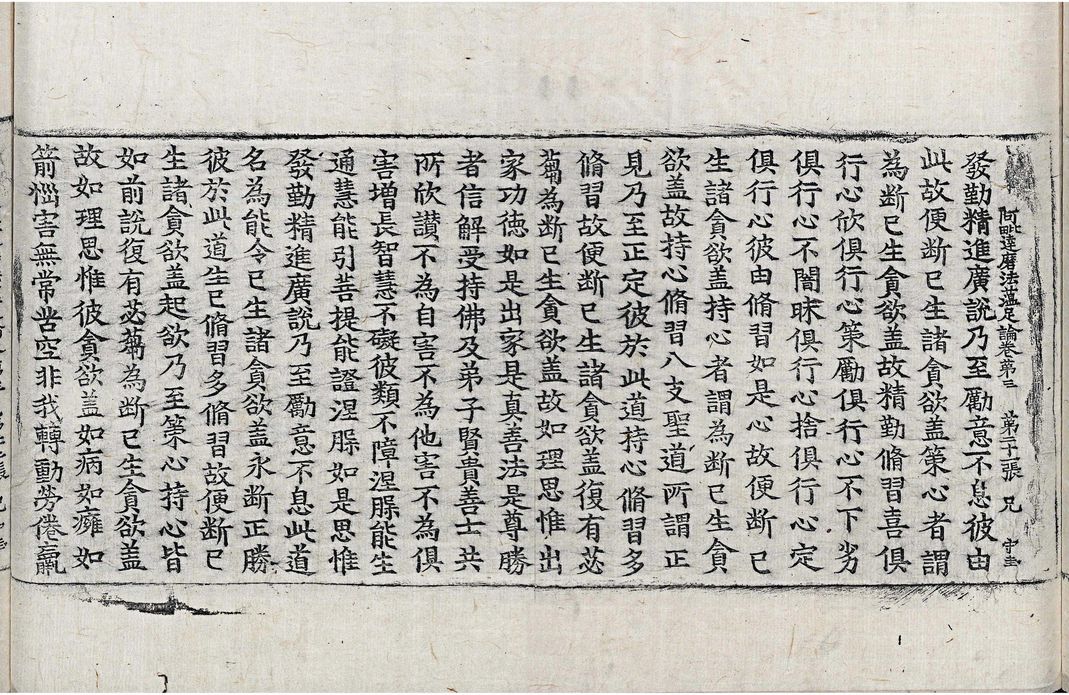 阿毗達磨法蘊足論卷第三 第二十張 兄 守圭
發勤精進廣說乃至勵意不息彼由
此故便斷已生諸貪欲盖策心者謂
為斷已生貪欲盖故精勤脩習喜俱
行心欣俱行心策勵俱行心不下劣
俱行心不闇昧俱行心捨俱行心定
俱行心彼由脩習如是心故便斷已
生諸貪欲盖持心者謂為斷已生貪
欲盖故持心脩習八支聖道所謂正
見乃至正定彼於此道持心脩習多
脩習故便斷已生諸貪欲盖復有苾
蒭為斷已生貪欲盖故如理思惟出
家功德如是出家是真善法是尊勝
者信解受持佛及弟子賢貴善士共
所欣讚不為自害不為他害不為俱
害增長智慧不礙彼類不障涅槃能生
通慧能引菩提能證涅槃如是思惟
發勤精進廣說乃至勵意不息此道
名為能令已生諸貪欲盖永斷正勝
彼於此道生已脩習多脩習故便斷已
生諸貪欲盖起欲乃至策心持心皆
如前說復有苾蒭為斷已生貪欲盖
故如理思惟彼貪欲盖如病如癰如
箭惱害無常苦空非我轉動勞倦羸